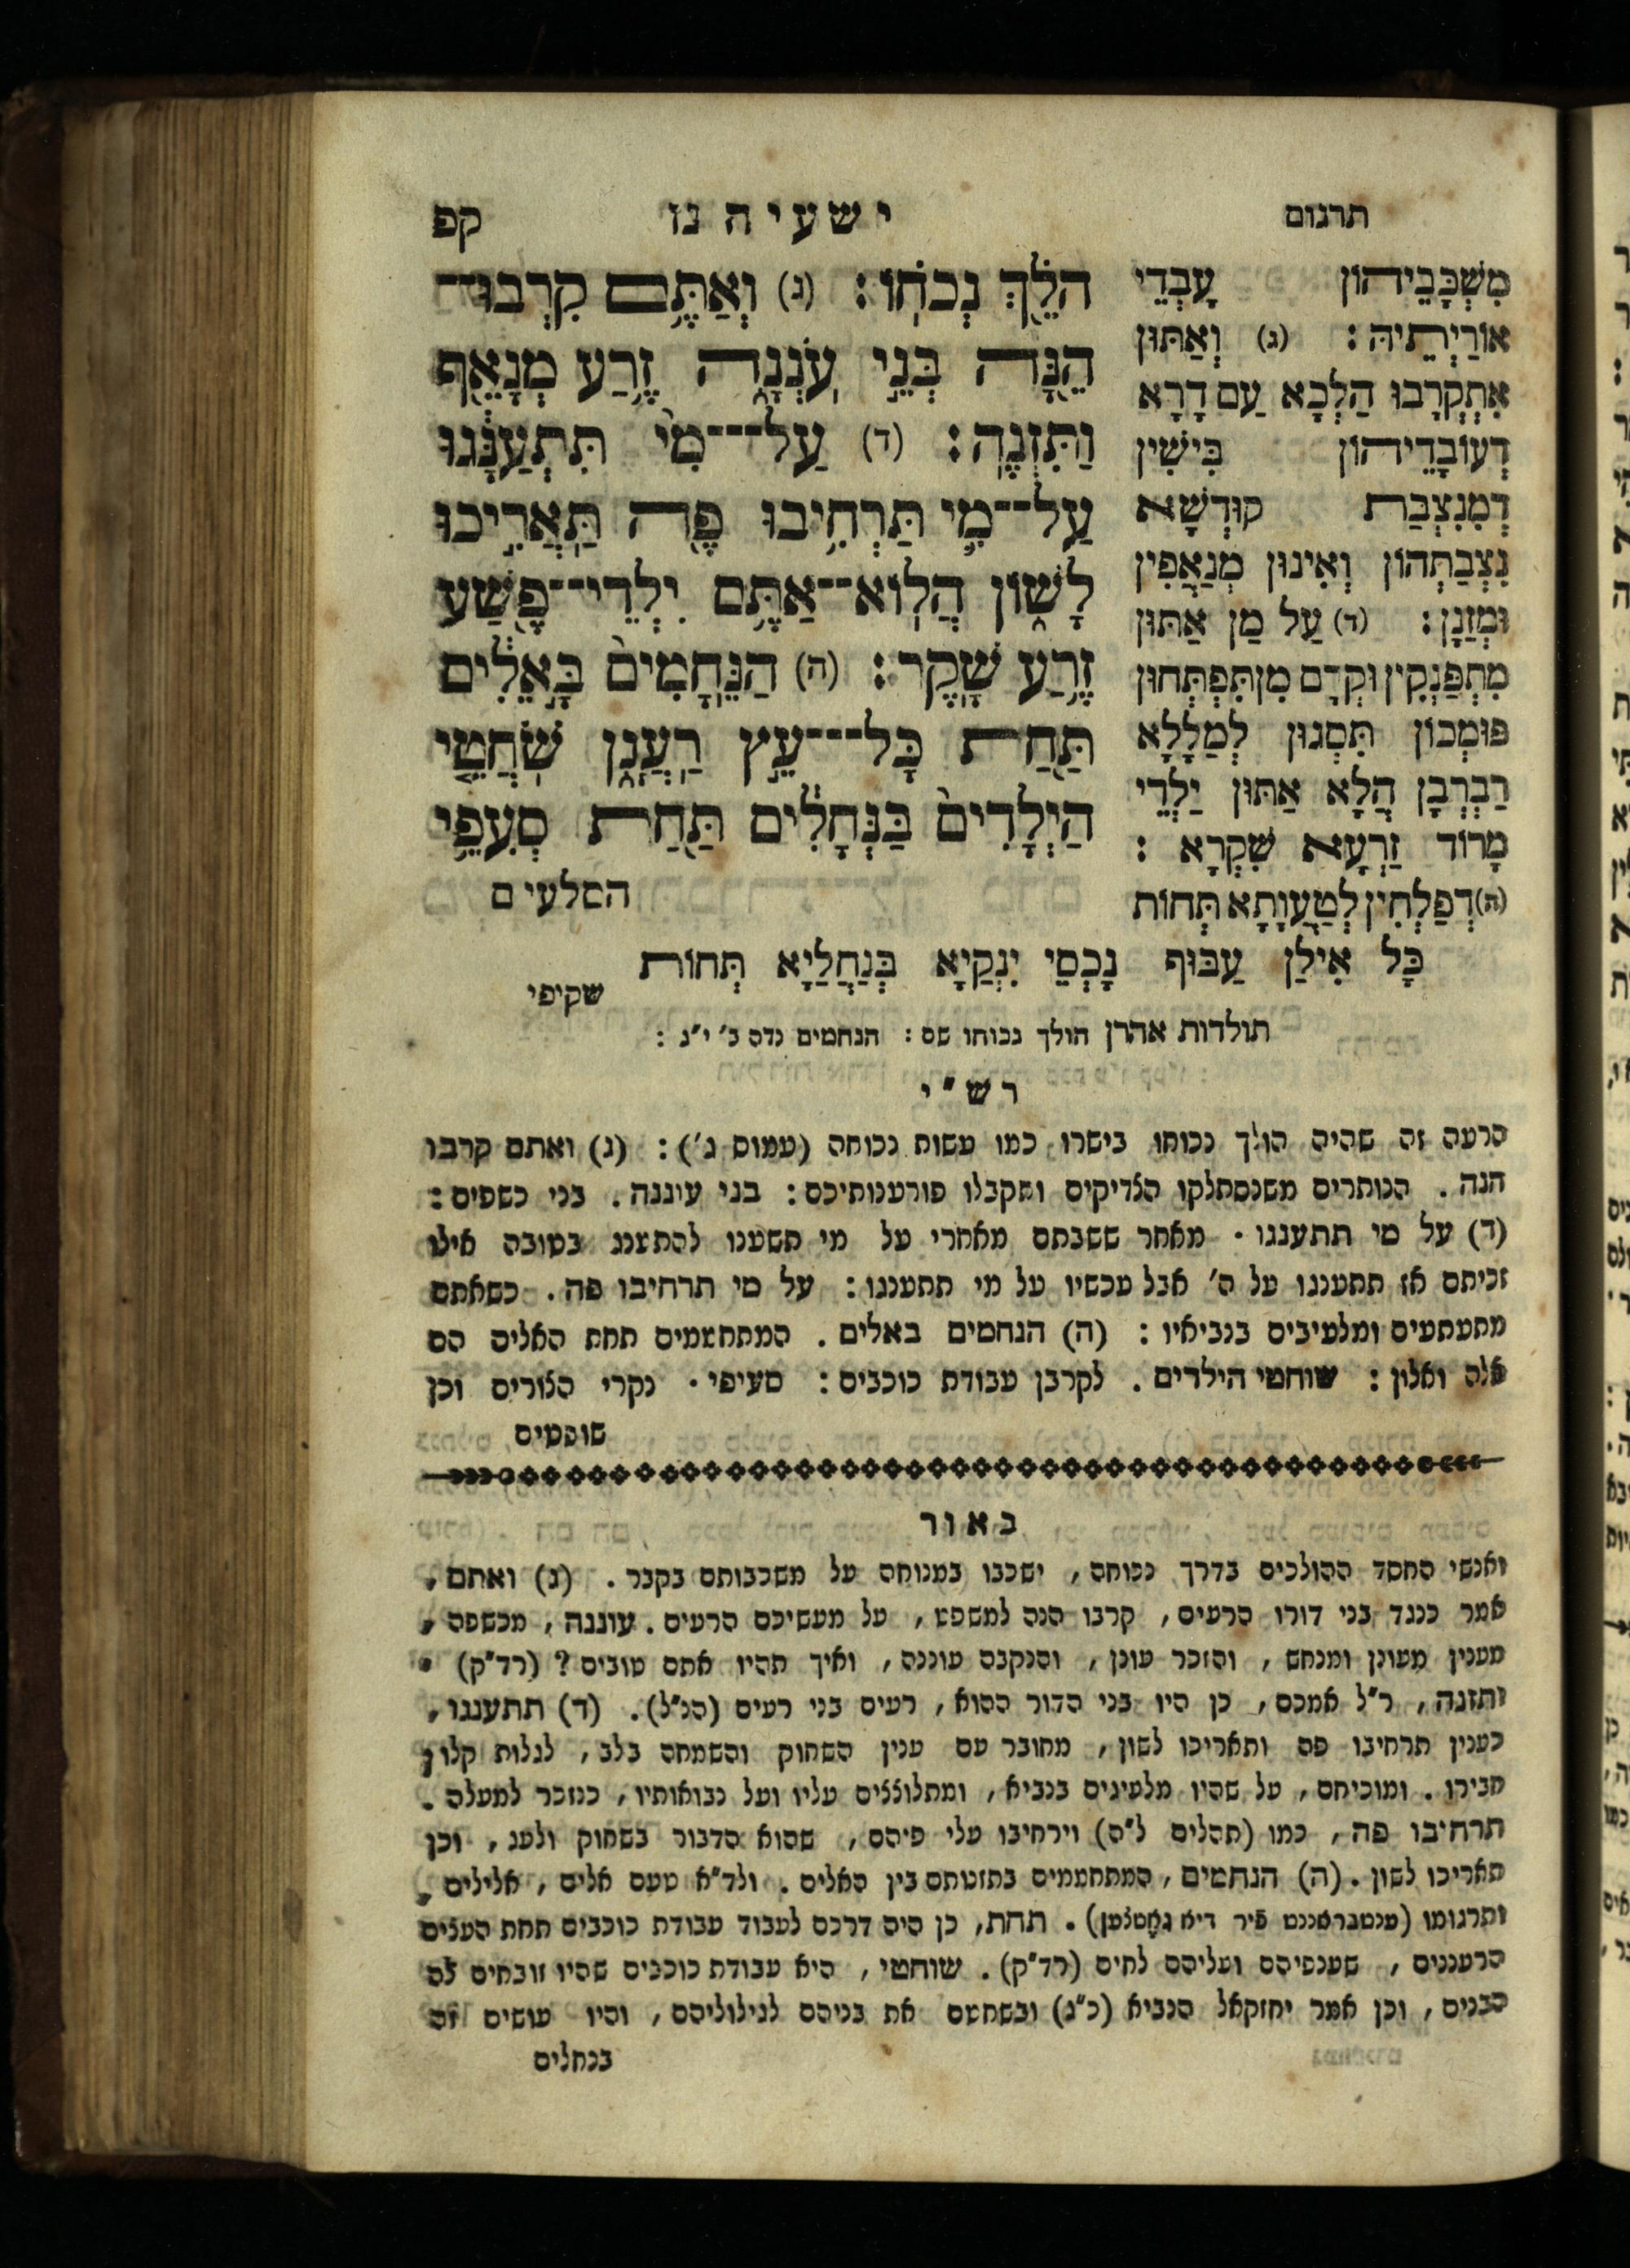 תרגום
ישעיה נז
קפ
הֹלֵ֖ךְ נְכֹחֽוֹ: (ג) וְאַתֶּ֥ם קִרְבוּ־
הֵ֖נָּה בְּנֵ֣י עֹֽנְנָ֑ה זֶ֥רַע מְנָאֵ֖ף
וַתִּזְנֶֽה: (ד) עַל־מִי֙ תִּתְעַנָּ֔גוּ
עַל־מִ֛י תַּרְחִ֥יבוּ פֶ֖ה תַּאֲרִ֣יכוּ
לָשׁ֑וֹן הֲלֽוֹא־אַתֶּ֥ם יִלְדֵי־פֶ֖שַׁע
זֶ֥רַע שָֽׁקֶר: (ה) הַנֵּֽחָמִים֙ בָּֽאֵלִ֔ים
תַּ֖חַת כָּל־עֵ֣ץ רַֽעֲנָ֑ן שֹֽׁחֲטֵ֤י
הַיְלָדִים֙ בַּנְּחָלִ֔ים תַּ֖חַת סְעִפֵ֥י
הסלעים
מִשְׁכְּבֵיהוֹן עָבְדֵי
אוֹרַיְתֵיהּ: (ג) וְאַתּוּן
אִתְקְרָבוּ הַלְכָא עַם דָרָא
דְעוֹבָדֵיהוֹן בִּישִׁין
דְמִנִצְבַת קוּדְשָׁא
נִצְבַתְהוֹן וְאִינוּן מְנַאֲפִין
וּמְזַנָן: (ד) עַל מַן אַתּוּן
מִתְפַּנְקִין וּקְדָם מַן תִּפְתְּחוּן
פּוּמְכוֹן תִּסְגוּן לְמַלָלָא
רַבְרְבָן הֲלָא אַתּוּן יַלְדֵי
מָרוֹד זַרְעָא שִׁקְרָא:
(ה) דְפַלְחִין לְטַעֲוָתָא תְּחוֹת
כָּל אִילַן עַבּוּף נָכְסֵי יַנְקַיָא בְּנַחֲלַיָא תְּחוֹת
שקיפי
תולדות אהרן הולך נכוחו שם: הנחמים נדה כ' י"ג:
רש"י
הרעה זה שהיה הולך נכוחו בישרו כמו עשות נכוחה (עמוס ג'): (ג) ואתם קרבו
הנה. הנותרים משנסתלקו הצדיקים ותקבלו פורענותיכם: בני עיננה. בני כשפים:
(ד) על מי תתענגו. מאחר ששבתם מאחרי על מי תשענו להתענג בטובה אילו
זכיתם אז תתענגו על ה' אבל עכשיו על מי תתענגו: על מי תרחיבו פה. כשאתם
מתעתעים ומלעיבים בנביאיו: (ה) הנחמים באלים. המתחממים תחת האליה הם
אלה ואלון: שוחטי הילדים. לקרבן עבודת כוכבים: סעיפי. נקרי הצורים וכן
שופטים
באור
ואנשי החסד ההולכים בדרך נכוחה, ישכבו במנוחה על משכבותם בקבר. (ג) ואתם,
אמר כנגד בני דורו הרעים, קרבו הנה למשפט, על מעשיכם הרעים. עוננה, מכשפה,
מענין מעונן ומנחש, והזכר עונן, והנקבה עוננה, ואיך תהיו אתם טובים? (רד"ק).
ותזנה, ר"ל אמכם, כן היו בני הדור ההוא, רעים בני רעים (הנ"ל). (ד) תתענגו,
כענין תרחיבו פה ותאריכו לשון, מחובר עם ענין השחוק והשמחה בלב, לגלות קלון
חבירו. ומוכיחם, על שהיו מלעיגים בנביא, ומתלוצצים עליו ועל נבואותיו, כנזכר למעלה.
תרחיבו פה, כמו (תהלים ל"ה) וירחיבו עלי פיהם, שהוא הדבור בשחוק ולעג, וכן
תאריכו לשון. (ה) הנחמים, המתחממים בתזנותם בין האלים. ולד"א טעם אלים, אלילים,
ותרגומו (ענטבראננט פיר דיא גאָטצען). תחת, כן היה דרכם לעבוד עבודת כוכבים תחת העצים
הרעננים, שענפיהם ועליהם לחים (רד"ק). שוחטי, היא עבודת כוכבים שהיו זובחים לה
הבנים, וכן אמר יחזקאל הנביא (כ"ג) ובשחטם את בניהם לגילוליהם, והיו עושים זה
בנחלים